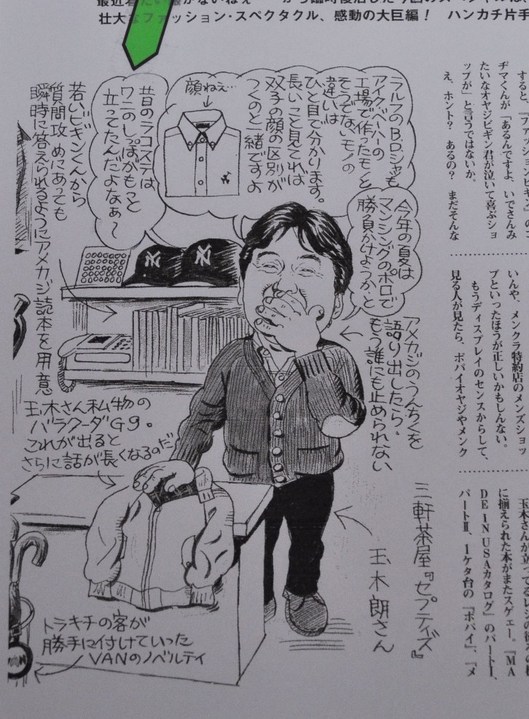 壮大なファッション・スペクタクル、感動の大巨編！ ハンカチ片手
ヂマくんが「あるんですよ、いでさんみ
たいなオヤジビギン君が泣いて喜ぶショ
ップが」と言うではないか。
え、ホント？ あるの？ まだそんな
いんや、メンクラ特約店のメンズショ
プといったほうが正しいかもしんない。
もうディスプレイのセンスからして、
見る人が見たら、ポパイオヤジやメンク
に揃えられた本がまたスゲェー。『MA
DE IN USAカタログ』のパートⅠ、
パートⅡ、1ケタ台の『ポパイ』、『メ
ラルフのBDシャツも
アイク・ベハーの
工場で作ったものと
そうでないモノの
違いは
ひと目で分かります。
長いこと見てれば
双子の顔の区別が
つくのと一緒ですよ
顔ねぇ…
昔のラコステは
ワニのしっぽがもっと
立ってたんだよなぁ〜
今年の夏は
マンシングのポロで
勝負かけようか、と
若いビギンくんから
質問攻めにあっても
瞬時に答えられるようにアメカジ読本を用意
NY
NY
アメカジのうんちくを
語り出したら、
もう誰にも止められない
玉木さん私物の
バラクーダG9。
これが出ると
さらに話が長くなるのだ
三軒茶屋『セプティズ』
玉木朗さん
トラキチの客が
勝手に付けていった
VANのノベルティ